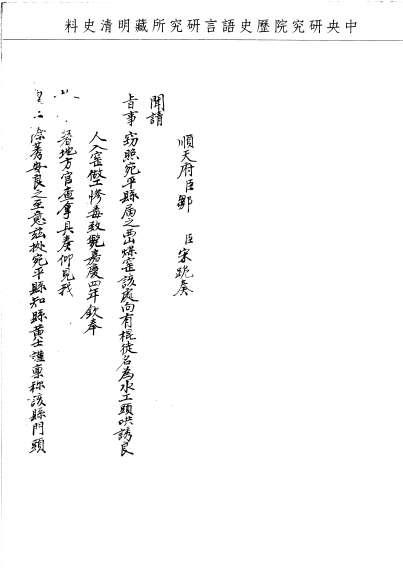 中央研究院歷史語言研究所藏明清史料
順天府臣鄒 臣宋跪奏
聞請
旨事竊照宛平縣屬之西山煤窰該處向有棍徒名為水工頭哄誘良
人入窰做工慘毒致斃嘉慶四年欽奉
著地方官查拿具奏仰見我
皇上除莠安良之至意茲據宛平縣知縣黃士謹稟稱該縣門頭